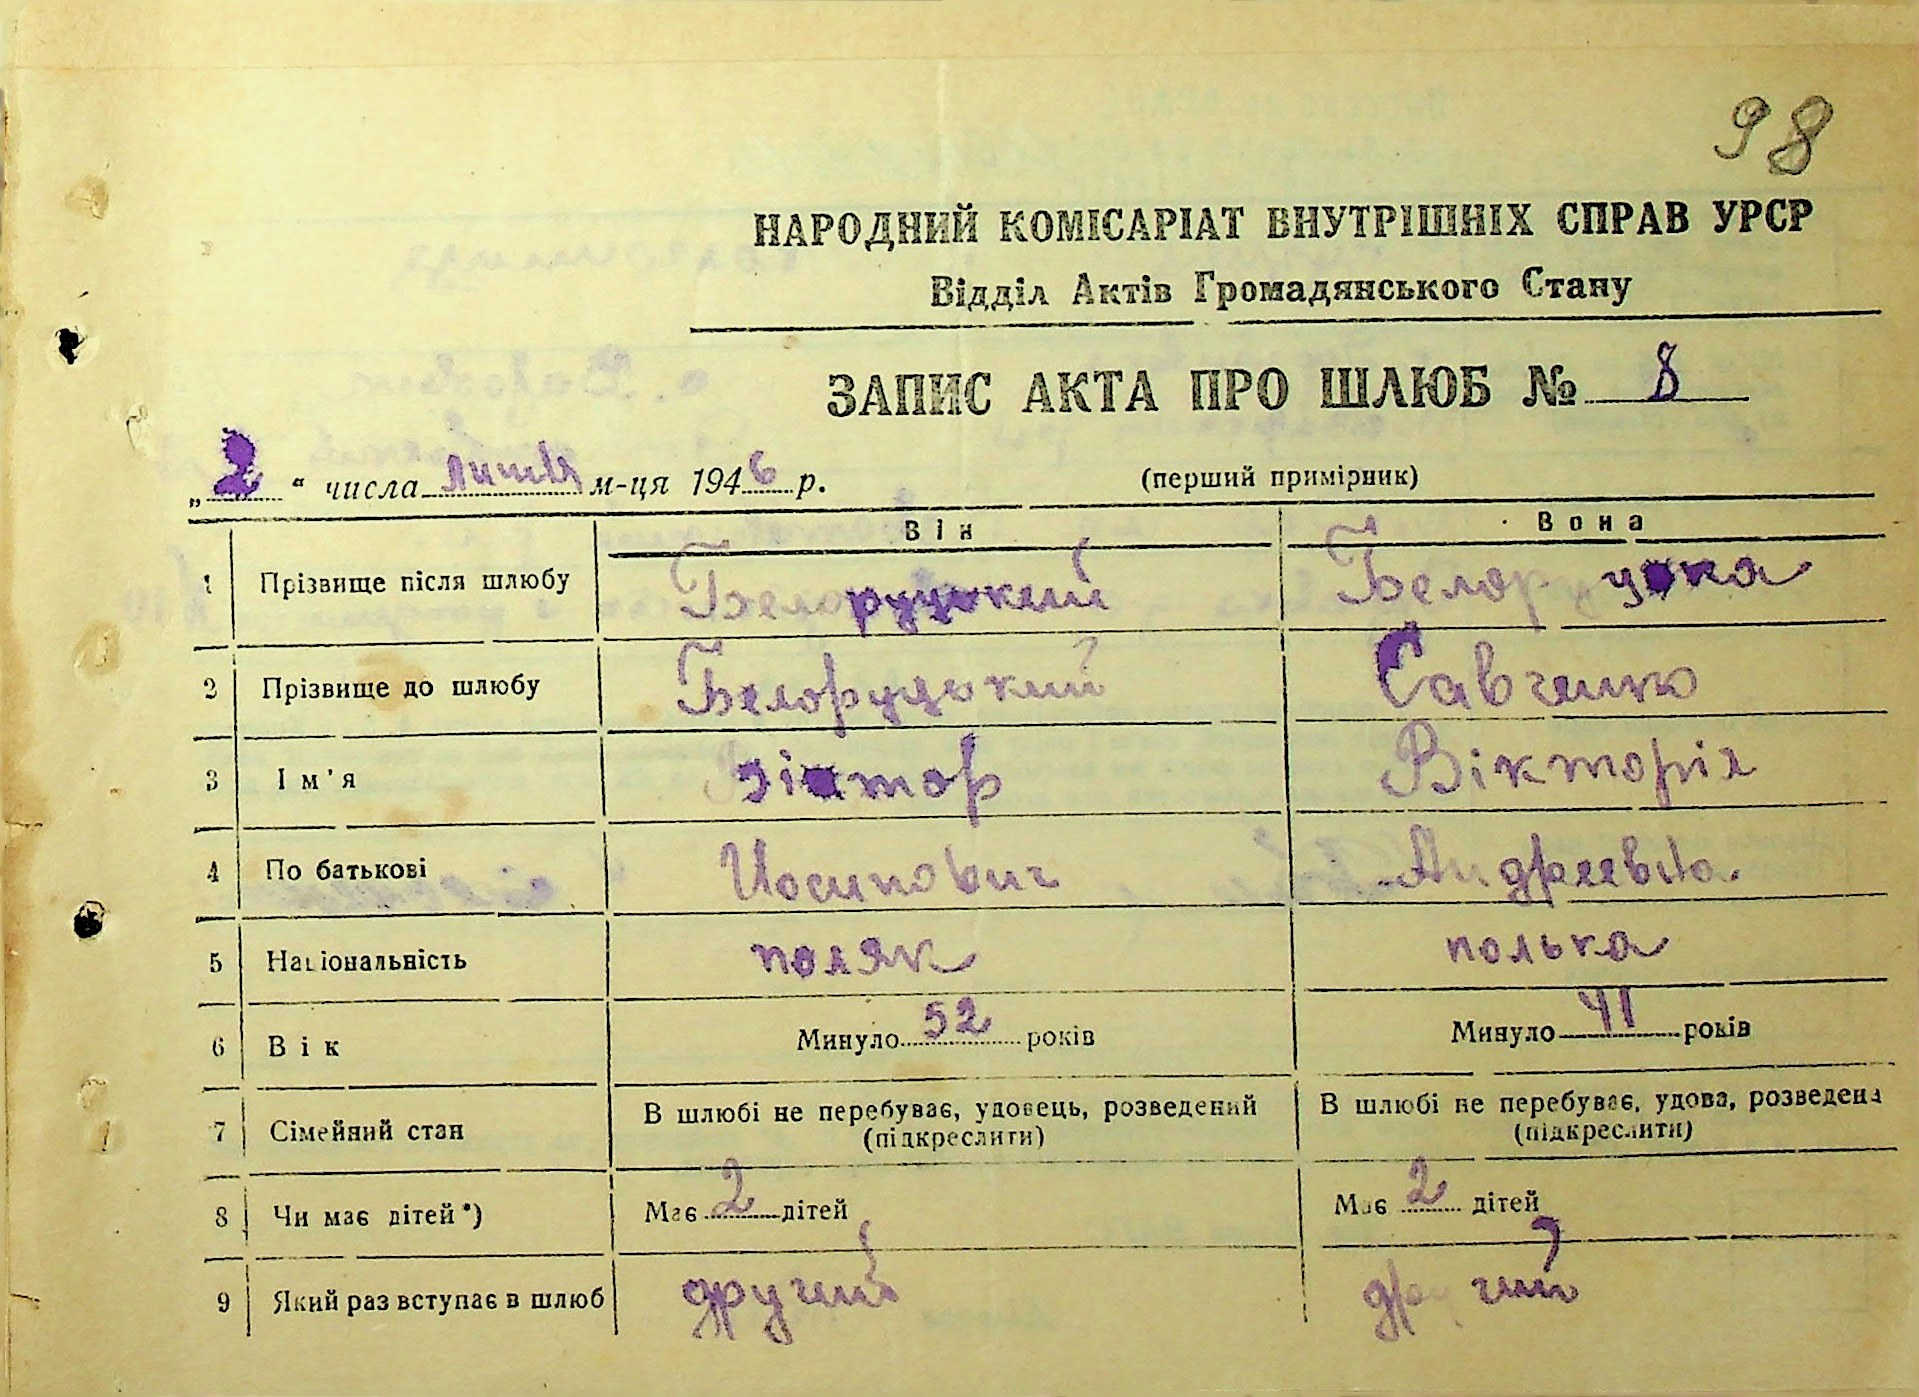 98
НАРОДНИЙ КОМІСАРІАТ ВНУТРІШНІХ СПРАВ УРСР
Відділ Актів Громадянського Стану
ЗАПИС АКТА ПРО ШЛЮБ № 8
„2“ числа липня м-ця 1946 р. (перший примірник)
Він Вона
1 Прізвище після шлюбу Белоруцький Белоруцька
2 Прізвище до шлюбу Белоруцький Савченко
3 Ім'я Віктор Вікторія
4 По батькові Иосипович Андреевна.
5 Національність поляк полька
6 Вік Минуло 52 років Минуло 41 років
7 Сімейний стан В шлюбі не перебуває, удовець, розведений (підкреслити) В шлюбі не перебуває, удова, розведена (підкреслити)
8 Чи має дітей*) Має 2 дітей Має 2 дітей
9 Який раз вступає в шлюб другий другий